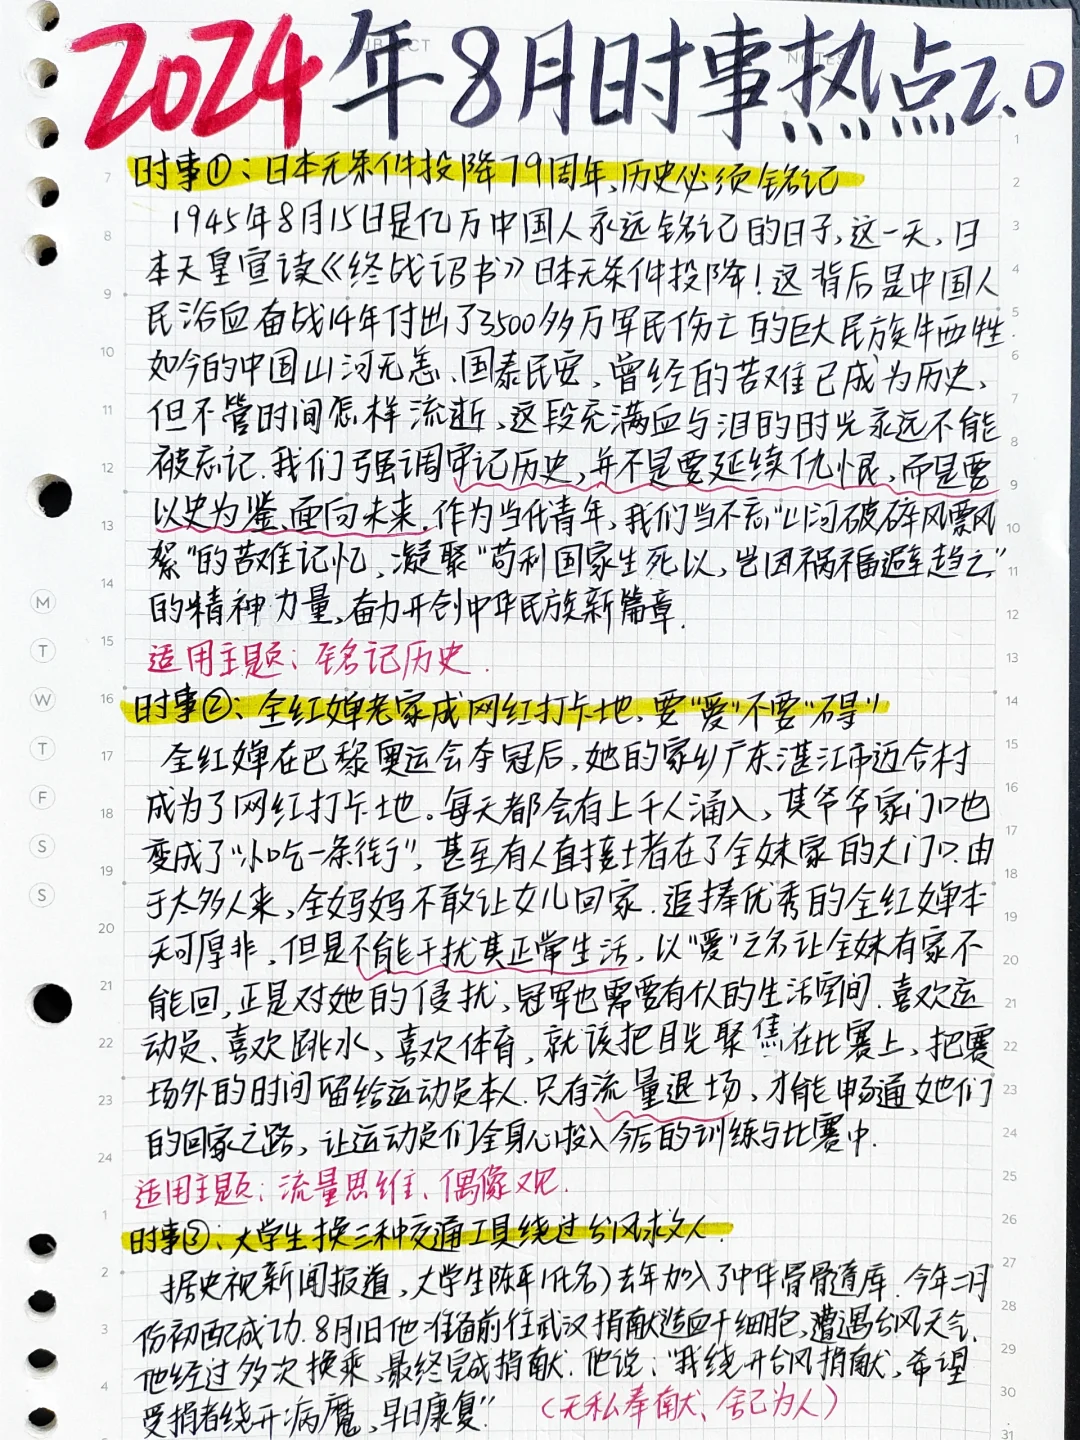 2024年8月时事热点2.0
时事①:日本无条件投降79周年,历史必须铭记
1945年8月15日是亿万中国人永远铭记的日子,这一天,日
本天皇宣读《终战诏书》日本无条件投降!这背后是中国人
民浴血奋战14年付出了3500多万军民伤亡的巨大民族牺牲
如今的中国山河无恙、国泰民安,曾经的苦难已成为历史,
但不管时间怎样流逝,这段充满血与泪的时光永远不能
被忘记.我们强调牢记历史,并不是要延续仇恨,而是要
以史为鉴、面向未来.作为当代青年,我们当不忘“山河破碎风飘
絮”的苦难记忆,凝聚“苟利国家生死以,岂因祸福避趋之”
的精神力量,奋力开创中华民族新篇章.
适用主题:铭记历史.
时事②:全红婵老家成网红打卡地,要“爱”不要“碍”!
全红婵在巴黎奥运会夺冠后,她的家乡广东湛江市迈合村
成为了网红打卡地。每天都会有上千人涌入,其爷爷家门口也
变成了“小吃一条街”,甚至有人直接堵在了全妹家的大门口.由
于太多人来,全妈妈不敢让女儿回家.追捧优秀的全红婵本
无可厚非,但是不能干扰其正常生活,以“爱”之名让全妹有家不
能回,正是对她的侵扰,冠军也需要有私的生活空间.喜欢运
动员、喜欢跳水,喜欢体育,就该把目光聚焦在比赛上,把赛
场外的时间留给运动员本人.只有流量退场,才能畅通她们
的回家之路,让运动员们全身心投入今后的训练与比赛中.
适用主题:流量思维、偶像观.
时事③:大学生换三种交通工具绕过台风救人.
据央视新闻报道,大学生陈平(化名)去年加入了中华骨髓库.今年二月
份初配成功.8月1日他准备前往武汉捐献造血干细胞,遭遇台风天气.
他经过多次换乘,最终完成捐献.他说:“我绕开台风捐献,希望
受捐者绕开病魔,早日康复.”(无私奉献、舍己为人)